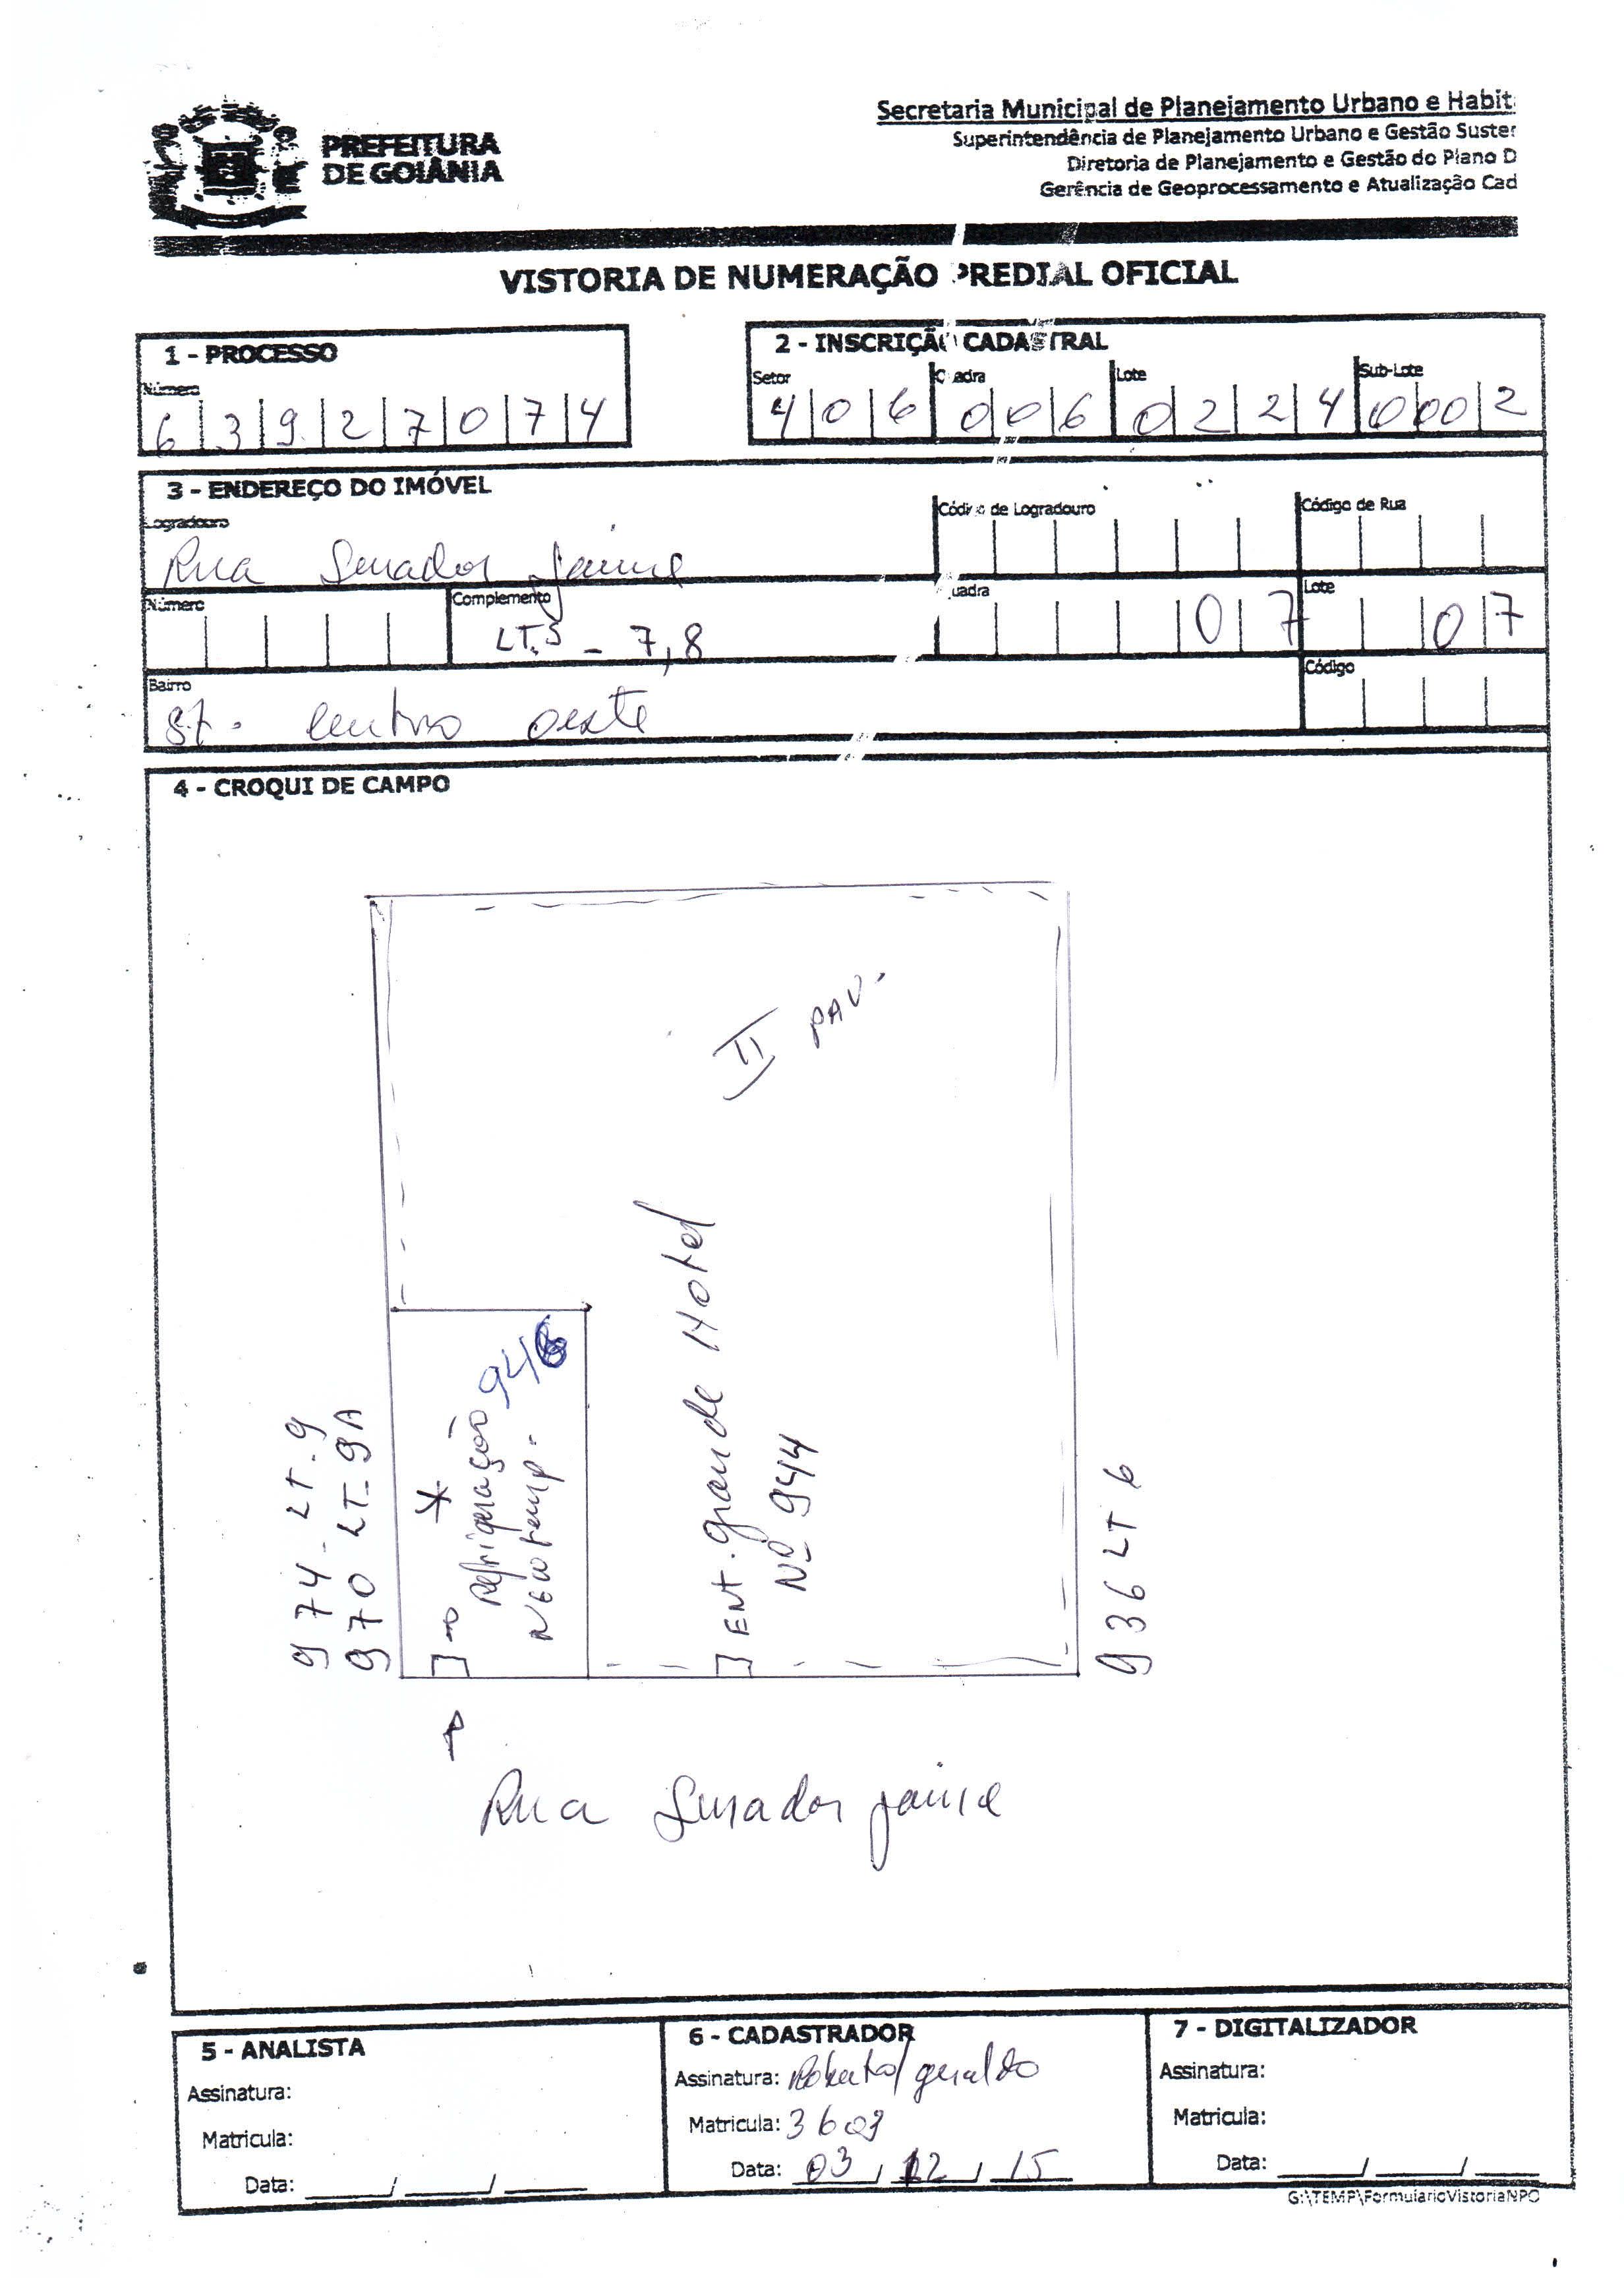 PREFEITURA
DE GOIÂNIA
Secretaria Municipal de Planejamento Urbano e Habit
Superintendência de Planejamento Urbano e Gestão Suster
Diretoria de Planejamento e Gestão do Plano D
Gerência de Geoprocessamento e Atualização Cad
VISTORIA DE NUMERAÇÃO PREDIAL OFICIAL
1 - PROCESSO
Número
6 3 9 2 7 0 7 4
2 - INSCRIÇÃO CADASTRAL
Setor Quadra Lote Sub-Lote
4 0 6 0 0 6 0 2 2 4 0 0 0 2
3 - ENDEREÇO DO IMÓVEL
Logradouro Código de Logradouro Código de Rua
Rua Senador Jaime
Número Complemento Quadra Lote
LT.S - 7,8 0 7 0 7
Bairro Código
St. Centro oeste
4 - CROQUI DE CAMPO
II PAV.
974 - LT. 9
970 LT. 9A
Refrigeração 946
New temp.
ENT. grande Hotel
Nº 944
936 LT 6
Rua Senador Jaime
5 - ANALISTA
Assinatura:
Matricula:
Data: ____/____/____
6 - CADASTRADOR
Assinatura: Roberto/geraldo
Matricula:
Data: 03 / 12 / 15
7 - DIGITALIZADOR
Assinatura:
Matricula:
Data: ____/____/____
G:\TEMP\FormularioVistoriaNPO